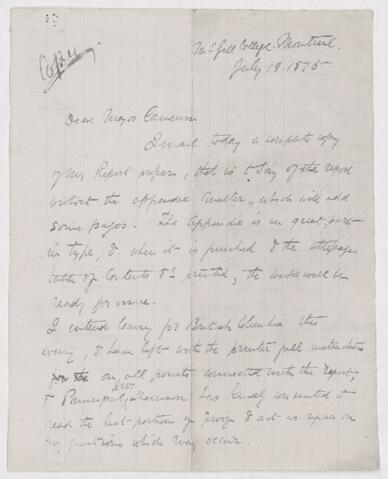 Copy
McGill College. Montreal.
July 19. 1875
Dear Major Cameron
I mail today a complete copy
of my Report proper, that is to say of the report
without the appendix matter, which will add
some pages. The Appendix is in great part
in type, & when it is finished & the title page
table of contents &c printed, the work will be
ready for issue.
I intend leaving for British Columbia this
evening, & have left with the printer full instructions
on all points connected with the report,
& Principal Dawson has kindly consented to
read the last portions of proof & act as referee on
any questions which may occur.